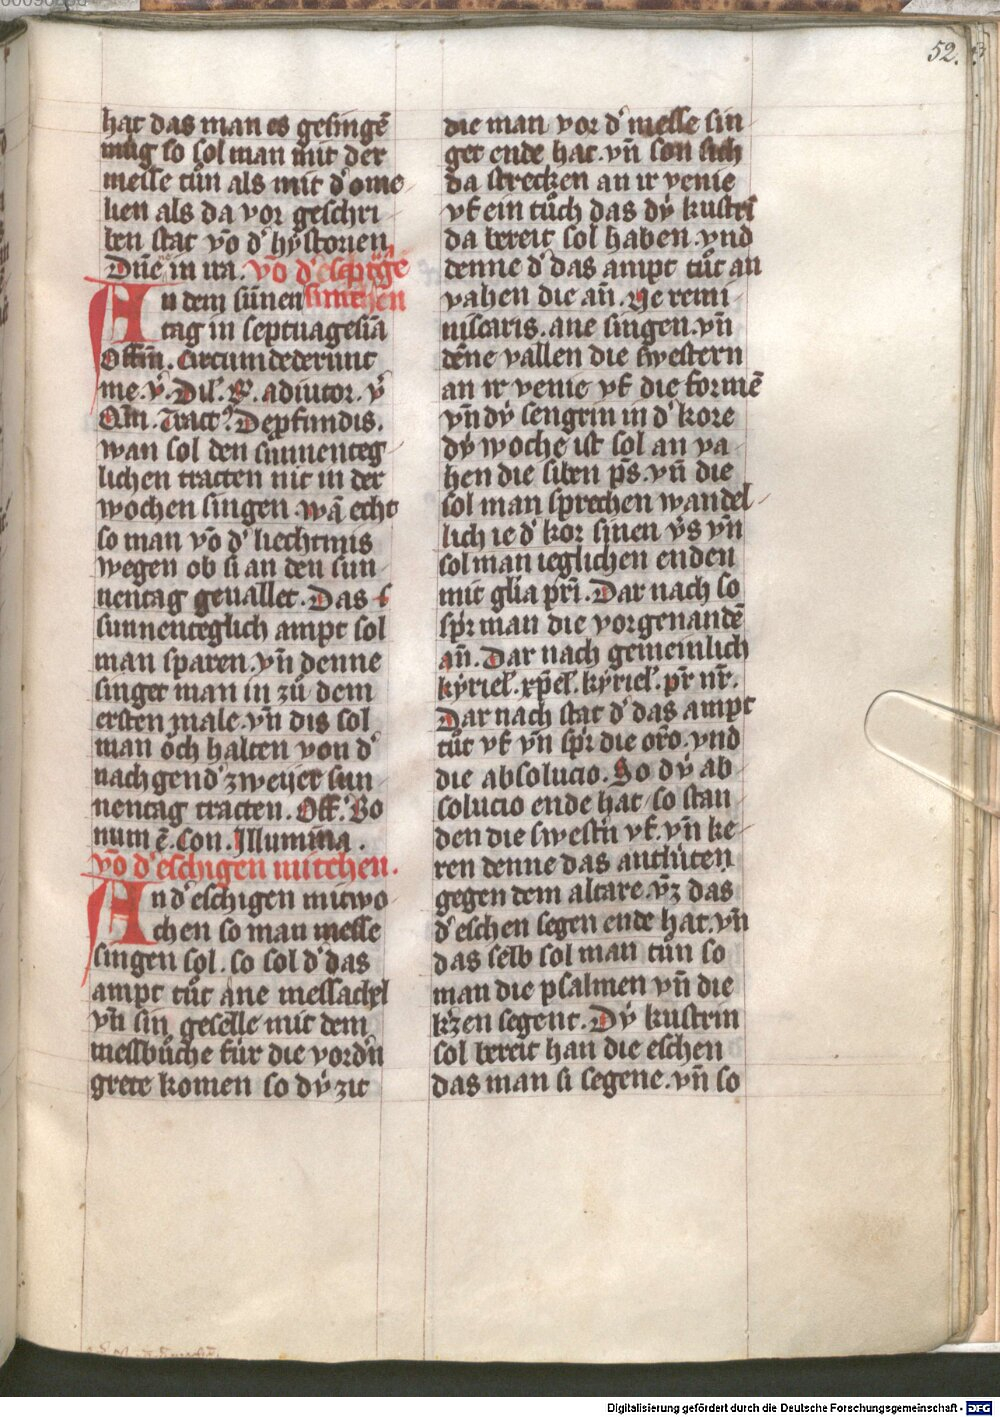 52.
hat das man es gesingē
mùg so sol man mit der
messe tůn als mit d' ome
lien als da vor geschri
ben stat vō d' hẏstorien
Dn̄e in ira. vō d' septùge
An dem sùnen simechen
tag in septuagesīa
Offm̄. Circumdederunt
me. ꝟ. Dil'. R. adiutor. ꝟ
Qm̄. Tract'. De pfundis.
wan sol den sunnenteg
lichen tracten nit in der
wochen singen. wā echt
so man vō d' liechtmis
wegen ob si an den sun
nentag geuallet. Das
sunnenteglich ampt sol
man sparen. vn̄ denne
singet man in zů dem
ersten male. vn̄ dis sol
man ôch halten von d'
nachgend' zweyer sun
nentag tracten. Off. Bo
num ē. Con. Illumīna.
vō d' eschigen mitchen.
An d' eschigen mitwo
chen so man messe
singen sol. so sol d' das
ampt tůt âne messachel
vn̄ sin geselle mit dem
messbůche für die vord'n
grete komen so dẏ zit
die man vor d' messe sin
get ende hat. vn̄ son sich
da strecken an ir venie
vf ein tůch das dẏ kustri
da bereit sol haben. vnd
denne d' das ampt tůt an
vahen die an̄. Ne remi
niscaris. ane singen. vn̄
dēne vallen die swestern
an ir venie vf die formē
vn̄ dẏ sengrin in d' kore
dẏ woche ist sol an va
hen die siben ps̄. vn̄ die
sol man sprechen wandel
lich ie d' kor sinen v̄s vn̄
sol man ieglichen enden
mit glia pr̄i. Dar nach so
spr̄ man die vorgenandē
an̄. Dar nach gemeinlich
kẏriel'. xp̄el'. kẏriel'. pr̄ nr̄.
Dar nach stat d' das ampt
tůt vf vn̄ spr̄ die or̄o. vnd
die absolucio. So dẏ ab
solucio ende hat so stan
den die swest'n vf. vn̄ ke
ren denne das antlùten
gegen dem altare. v̄z das
d' eschen segen ende hat. vn̄
das selb sol man tůn so
man die psalmen vn̄ die
k'zen segent. Dẏ kustrin
sol bereit han die eschen
das man si segene. vn̄ so
Digitalisierung gefördert durch die Deutsche Forschungsgemeinschaft - DFG